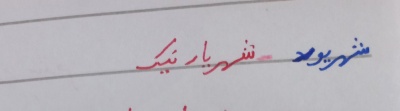 شهریور - شهریار نیک